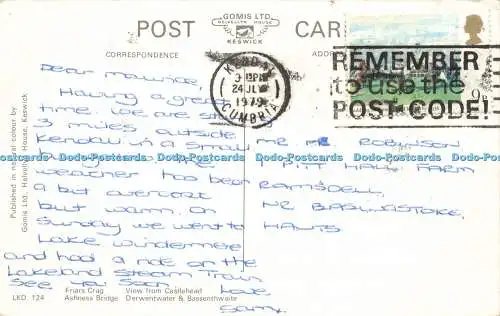 POST CARD
GOMIS LTD.
HELVELLYN HOUSE
KESWICK
CORRESPONDENCE
ADDRESS
KENDAL
24 JLY
1979
CUMBRIA
REMEMBER
to use the
POST CODE!
9p
Dear Maurice,
Having a great
time. We are staying
3 miles outside
Kendal in a small
weather has been
a bit overcast
but warm. On
Sunday we went to
Lake Windermere
and had a ride on the
Lakeland Steam Train
See you soon
Love,
Sam
MR. ROBINSON
PITT HALL FARM
RAMSDELL,
NR BASINGSTOKE,
HANTS
Postcards-World.com
Published in natural colour by
Gomis Ltd, Helvellyn House, Keswick
LKD. 124
Friars Crag View from Castlehead
Ashness Bridge Derwentwater & Bassenthwaite